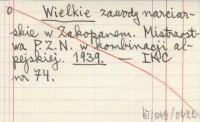 Wielkie zawody narciar-
skie w Zakopanem. Mistrzostwa
P.Z.N. w kombinacji al-
pejskiej. 1939. — INC
nr 74.